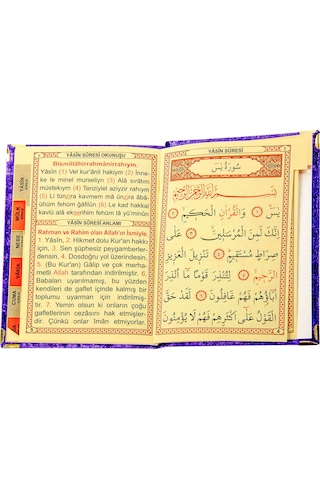 YÂSÎN SÛRESİ OKUNUŞU
Bismillâhirrahmânirrahîym.
Yâsîn (1) Vel kur'ânil hakiym (2) İnne-
ke le minel murseliyn (3) Alâ sırâtım
müstekıym (4) Tenziylel aziyzir rahıym
(5) Li tünzira kavmem mâ ünzira âbâ-
ühüm fehüm ğâfilûn (6) Le kad hakkal
kavlü alâ ekserihim fehüm lâ yü'minûn
YÂSÎN SÛRESİ ANLAMI
Rahman ve Rahim olan Allah'ın İsmiyle.
1. Yâsîn, 2. Hikmet dolu Kur'an hakkı
için, 3. Sen şüphesiz peygamberler-
densin. 4. Dosdoğru yol üzerindesin.
5. (Bu Kur'an) Gâlip ve çok merha-
metli Allah tarafından indirilmiştir. 6.
Babaları uyarılmamış, bu yüzden
kendileri de gaflet içinde kalmış bir
toplumu uyarman için indirilmiş-
tir. 7. Yemin olsun ki onların çoğu
gafletlerinin cezasını hak etmişler-
dir. Çünkü onlar iman etmiyorlar.
YÂSÎN
MÜLK
NEBE
CUMA
YÂSÎN SÛRESİ
سُورَةُ يٰسٓ
بِسْمِ اللّٰهِ الرَّحْمٰنِ الرَّحِيمِ
يٰسٓ ﴿١﴾ وَالْقُرْاٰنِ الْحَكِيمِ ﴿٢﴾
اِنَّكَ لَمِنَ الْمُرْسَلِينَ ﴿٣﴾ عَلٰى
صِرَاطٍ مُسْتَقِيمٍ ﴿٤﴾ تَنْزِيلَ الْعَزِيزِ
الرَّحِيمِ ﴿٥﴾ لِتُنْذِرَ قَوْمًا مَٓا اُنْذِرَ
اٰبَٓاؤُ۬هُمْ فَهُمْ غَافِلُونَ ﴿٦﴾ لَقَدْ حَقَّ
الْقَوْلُ عَلٰٓى اَكْثَرِهِمْ فَهُمْ لَا يُؤْمِنُونَ
4